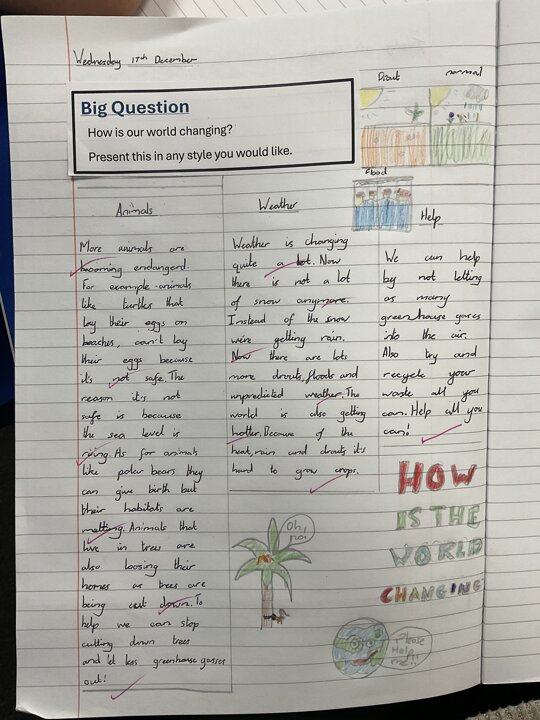 Wednesday 17th December
Big Question
How is our world changing?
Present this in any style you would like.
Drout
normal
Flood
Animals
More animals are
becoming endangerd.
For example animals
like turtles that
lay their eggs on
beaches, can't lay
their eggs because
it's not safe. The
reason it's not
safe is because
the sea level is
rising. As for animals
like polar bears they
can give birth but
their habitats are
melting. Animals that
live in trees are
also loosing their
homes as trees are
being cut down. To
help we can stop
cutting down trees
and let less greenhouse gasses
out!
Weather
Weather is changing
quite a lot. Now
there is not a lot
of snow anymore.
Instead of the snow
we're getting rain.
Now there are lots
more drouts, floods and
unpredicted weather. The
world is also getting
hotter. Because of the
heat, rain and drouts it's
hard to grow crops.
Help
We can help
by not letting
as many
green house gases
into the air.
Also try and
recycle your
waste all you
can. Help all you
can!
HOW
IS THE
WORLD
CHANGING
Oh,
no!
Please
Help
me!!